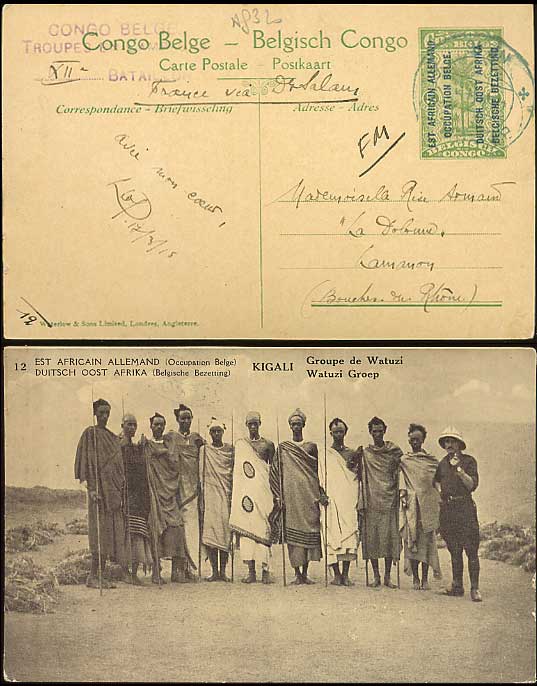 CONGO BELGE
TROUPES
XII
BATAILLON
Congo Belge – Belgisch Congo
Carte Postale - Postkaart
France via Dr Salam
Correspondance - Briefwisseling
Adresse - Adres
EST AFRICAIN ALLEMAND
OCCUPATION BELGE.
DUITSCH OOST AFRIKA
BELGISCHE BEZETTING.
BELGISCH
CONGO
FM
avec mon cœur,
Mademoiselle
"La
(Bouches du Rhône)
12
Waterlow & Sons Limited, Londres, Angleterre.
12 EST AFRICAIN ALLEMAND (Occupation Belge)
DUITSCH OOST AFRIKA (Belgische Bezetting)
KIGALI
Groupe de Watuzi
Watuzi Groep